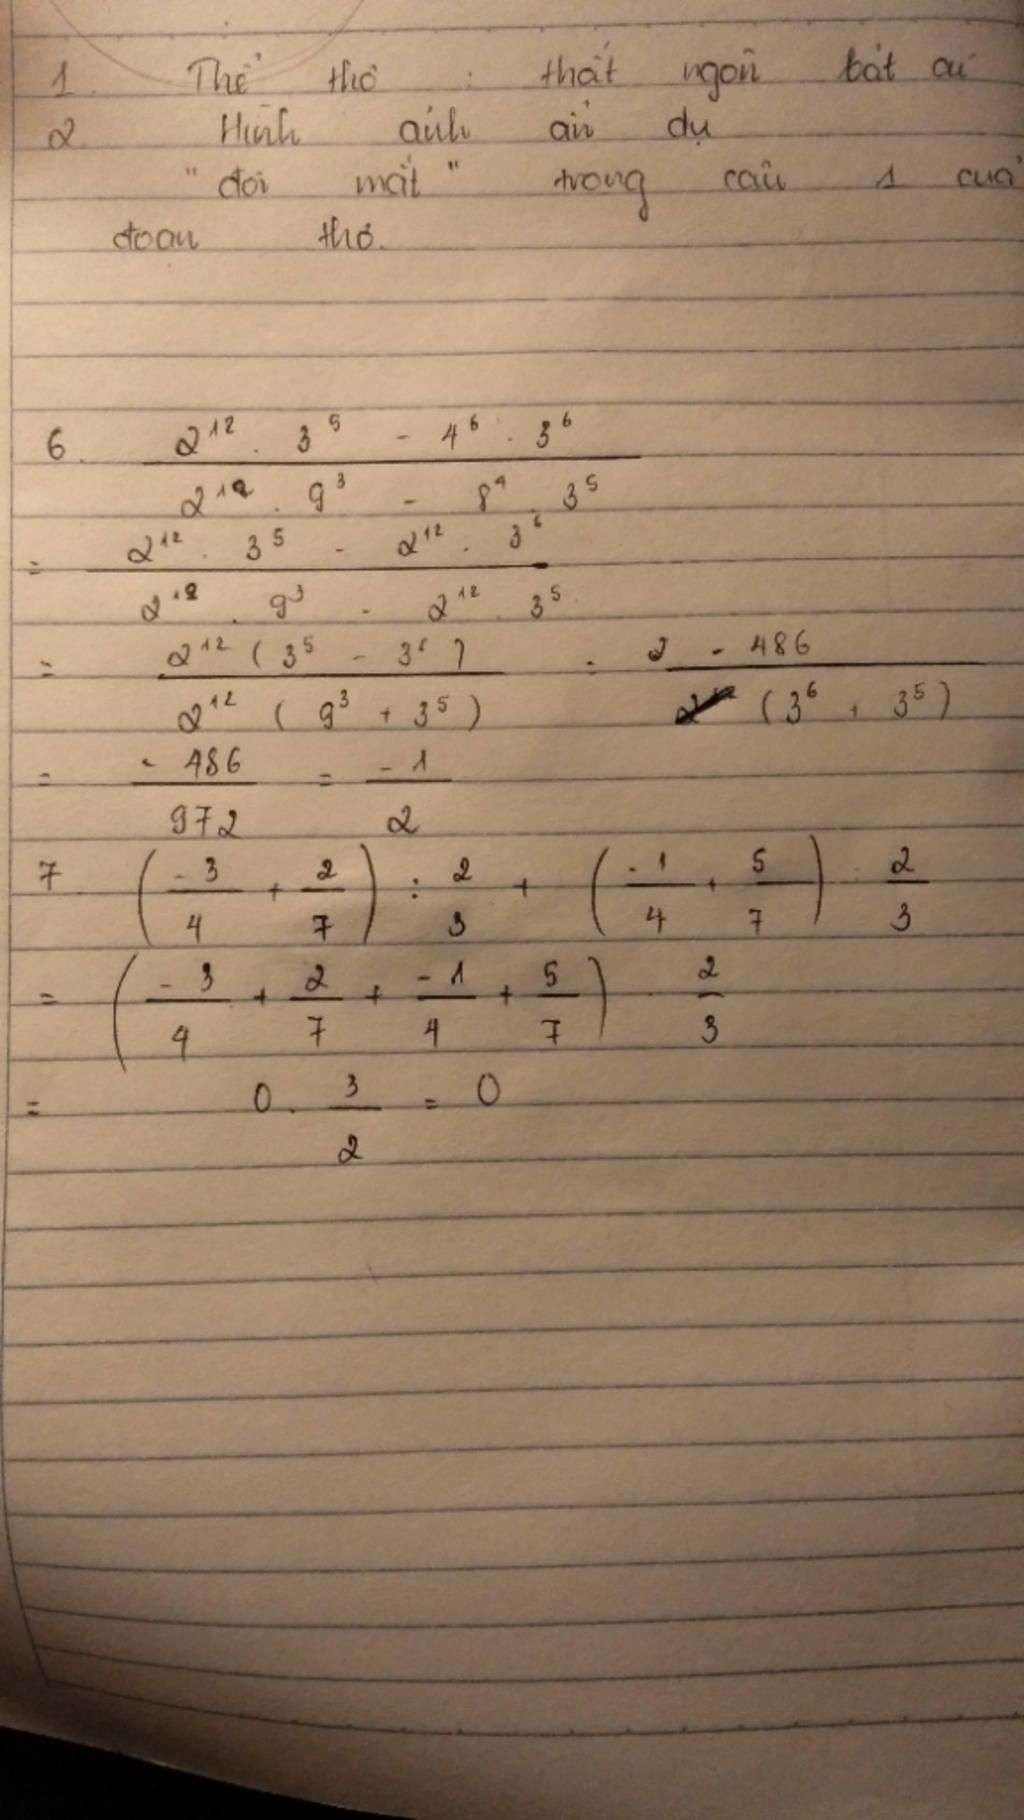 1. Thể thơ : thất ngôn bát cú
2. Hình ảnh ẩn dụ
"đôi mắt" trong câu 1 của
đoạn thơ.
6. (2^12 . 3^5 - 4^6 . 3^6) / (2^12 . 9^3 - 8^4 . 3^5)
= (2^12 . 3^5 - 2^12 . 3^6) / (2^12 . 9^3 - 2^12 . 3^5)
= 2^12 (3^5 - 3^6) / 2^12 (9^3 + 3^5) = - 486 / (3^6 + 3^5)
= - 486 / 972 = - 1 / 2
7. (- 3/4 + 2/7) : 2/3 + (- 1/4 + 5/7) : 2/3
= (- 3/4 + 2/7 + - 1/4 + 5/7) 2/3
= 0 . 3/2 = 0